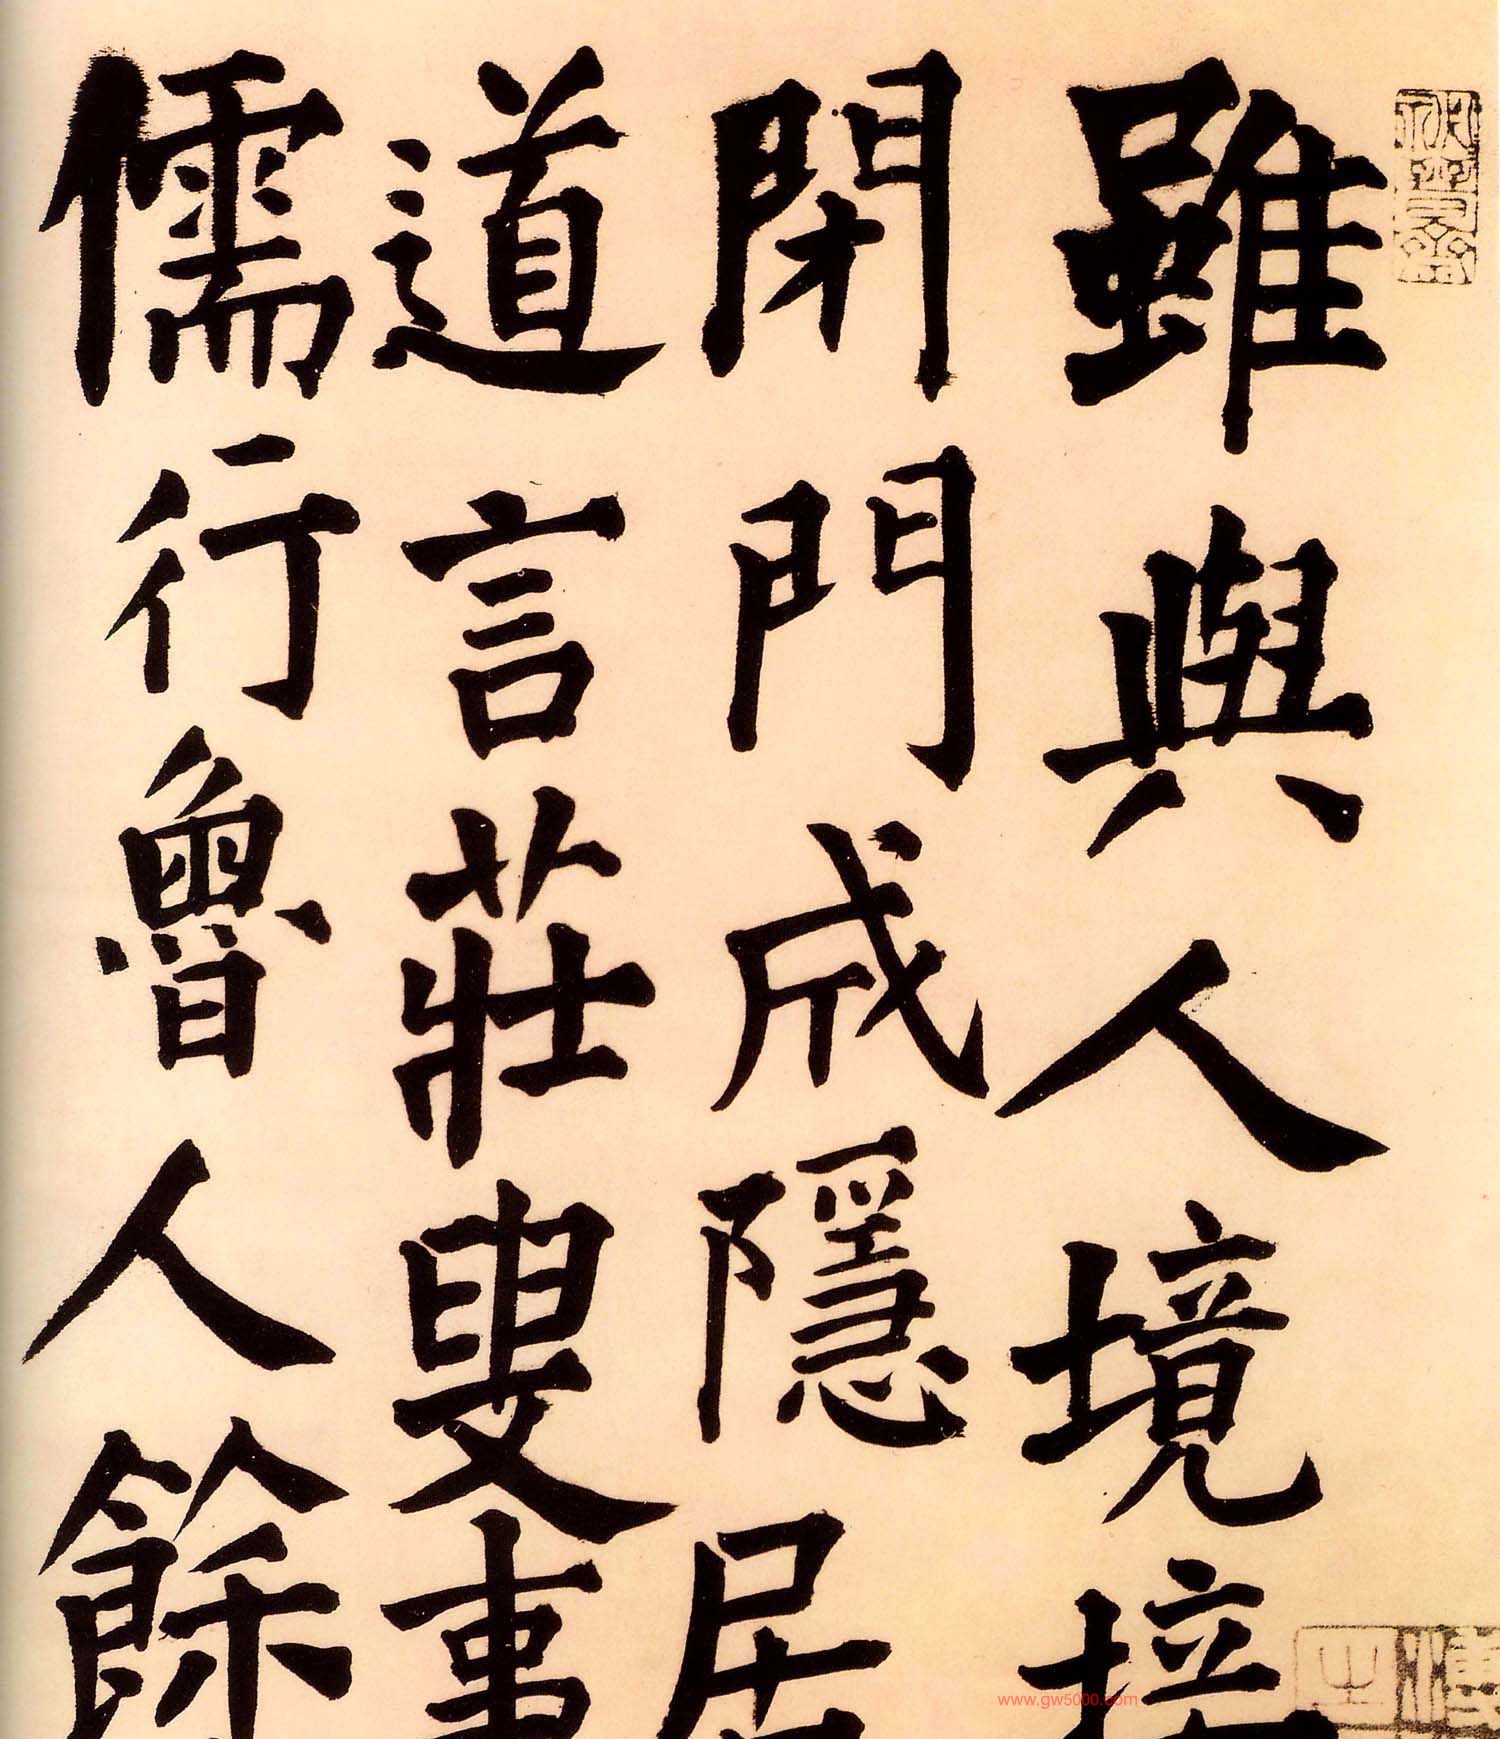 雖與人境接
閉門成隱居
道言莊叟事
儒行魯人餘
www.gw5000.com